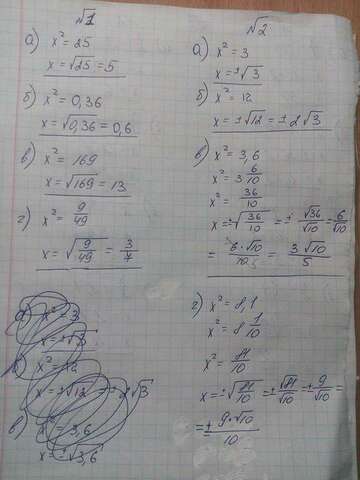 √1
а) x² = 25
x = √25 = 5
б) x² = 0,36
x = √0,36 = 0,6
в) x² = 169
x = √169 = 13
г) x² = 9/49
x = √(9/49) = 3/7
а) x² = 3
x = ±√3
x² = 12
x = ±√12 = ±2√3
в) x² = 3,6
x = ±√3,6
√2
а) x² = 3
x = ±√3
б) x² = 12
x = ±√12 = ±2√3
в) x² = 3,6
x² = 3 6/10
x² = 36/10
x = ±√(36/10) = ± √36/√10 = 6/√10
= 6·√10/10 = 3√10/5
г) x² = 8,1
x² = 8 1/10
x² = 81/10
x = ±√(81/10) = ±√81/√10 = ± 9/√10 =
= ± 9·√10/10